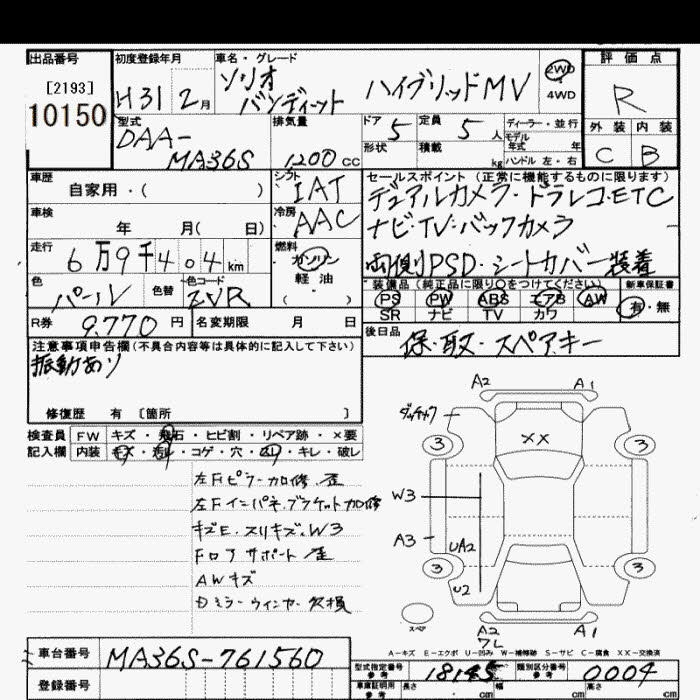 出品番号 初度登録年月 車名・グレード 評価点
[2193]
10150
H31 2月
ソリオ バンディット ハイブリッドMV
2WD
4WD
R
型式 排気量 ドア 定員 ディーラー・並行
DAA-MA36S
1200 cc
5 5人
モデル年式 年
形状 積載 kg ハンドル 左・右
外装 内装
C B
車歴 シフト セールスポイント(正常に機能するものに限ります)
自家用・( )
IAT
デュアルカメラ・ドラレコ・ETC
車検 冷房
年 月( 日)
AAC
ナビ・TV・バックカメラ
走行 燃料
6万9千404km
ガソリン
軽油
( )
両側PSD・シートカバー装着
色 色替 色コード
パール ZVR
装備品(純正品に限り○をつけてください) 新車保証書
PS PW ABS エアB AW
SR ナビ TV カワ
有・無
R券 9.770円 名変期限 月 日
後日品
保・取・スペアキー
注意事項申告欄(不具合内容等は具体的に記入して下さい)
振動あり
修復歴 有 〔箇所 〕
検査員 FW キズ・飛石・ヒビ割・リペア跡・×要
記入欄 内装 キズ・汚れ・コゲ・穴・スレ・キレ・破レ
左Fピラー加修・歪
左Fインパネ・ブラケット加修
キズE・スリキズ・W3
Fロアサポート 歪
AWキズ
ミラーウィンカー欠損
A2 A1
××
3 3
W3
A3
UA2
3 3
U2
スペア
A2 A1
A-キズ E-エクボ U-凹み W-補修跡 S-サビ C-腐食 XX-交換済
車台番号 MA36S-761560
登録番号
型式指定番号 参考 18145 類別区分番号 参考 0004
車庫証明用 参考 長さ cm 幅 cm 高さ cm